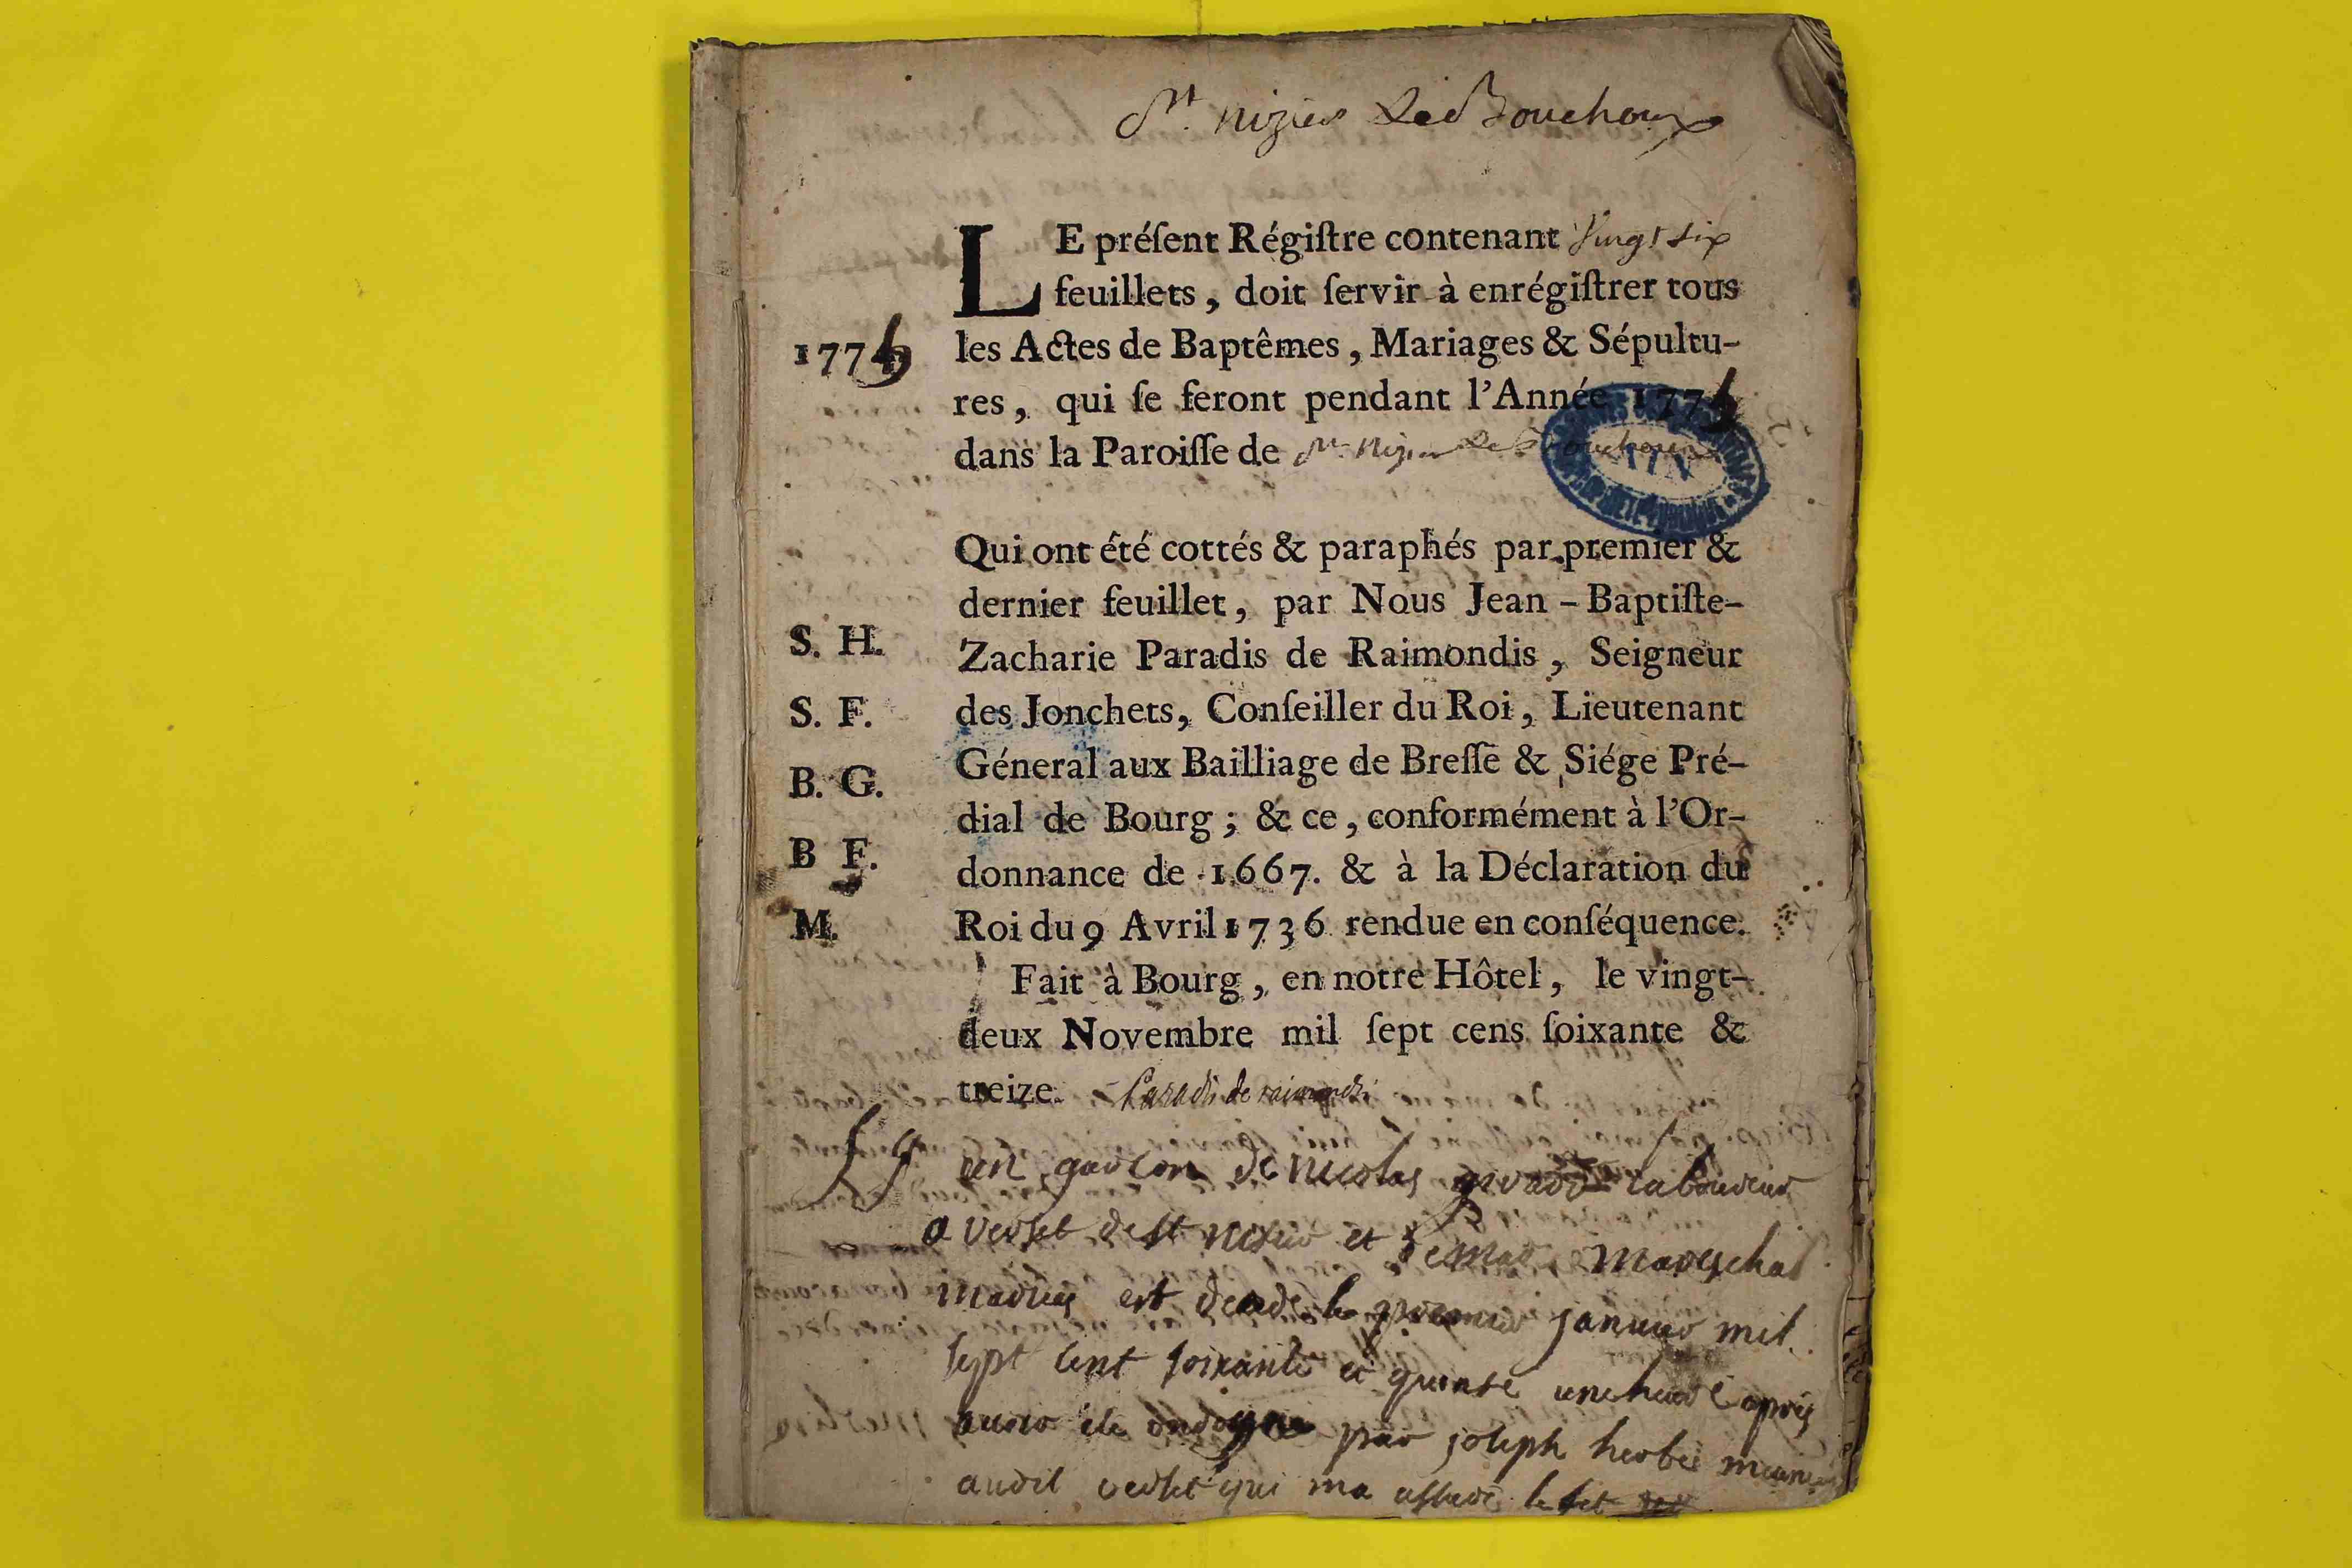 St. nizier Le Bouchoux
LE préſent Régiſtre contenant Vingt six
feuillets, doit ſervir à enrégiſtrer tous
1775
les Actes de Baptêmes, Mariages & Sépultu-
res, qui ſe feront pendant l'Année 1775
dans la Paroiſſe de St. Nizier Le Bouchoux
Qui ont été cottés & paraphés par premier &
dernier feuillet, par Nous Jean-Baptiſte-
S. H.
Zacharie Paradis de Raimondis, Seigneur
S. F.
des Jonchets, Conſeiller du Roi, Lieutenant
B. G.
Géneral aux Bailliage de Breſſe & Siége Pré-
dial de Bourg; & ce, conformément à l'Or-
B F.
donnance de 1667. & à la Déclaration du
M.
Roi du 9 Avril 1736 rendue en conſéquence.
Fait à Bourg, en notre Hôtel, le vingt-
deux Novembre mil ſept cens ſoixante &
treize. Paradis de raimondis
un garcon de nicolas laboureur
a verset de st nixier et mareschal
mariés est decede le premier janvier mil
sept cent soixante et quinse une heure apres
avoir ete ondoyne par joseph
audit verset qui ma assure le fet